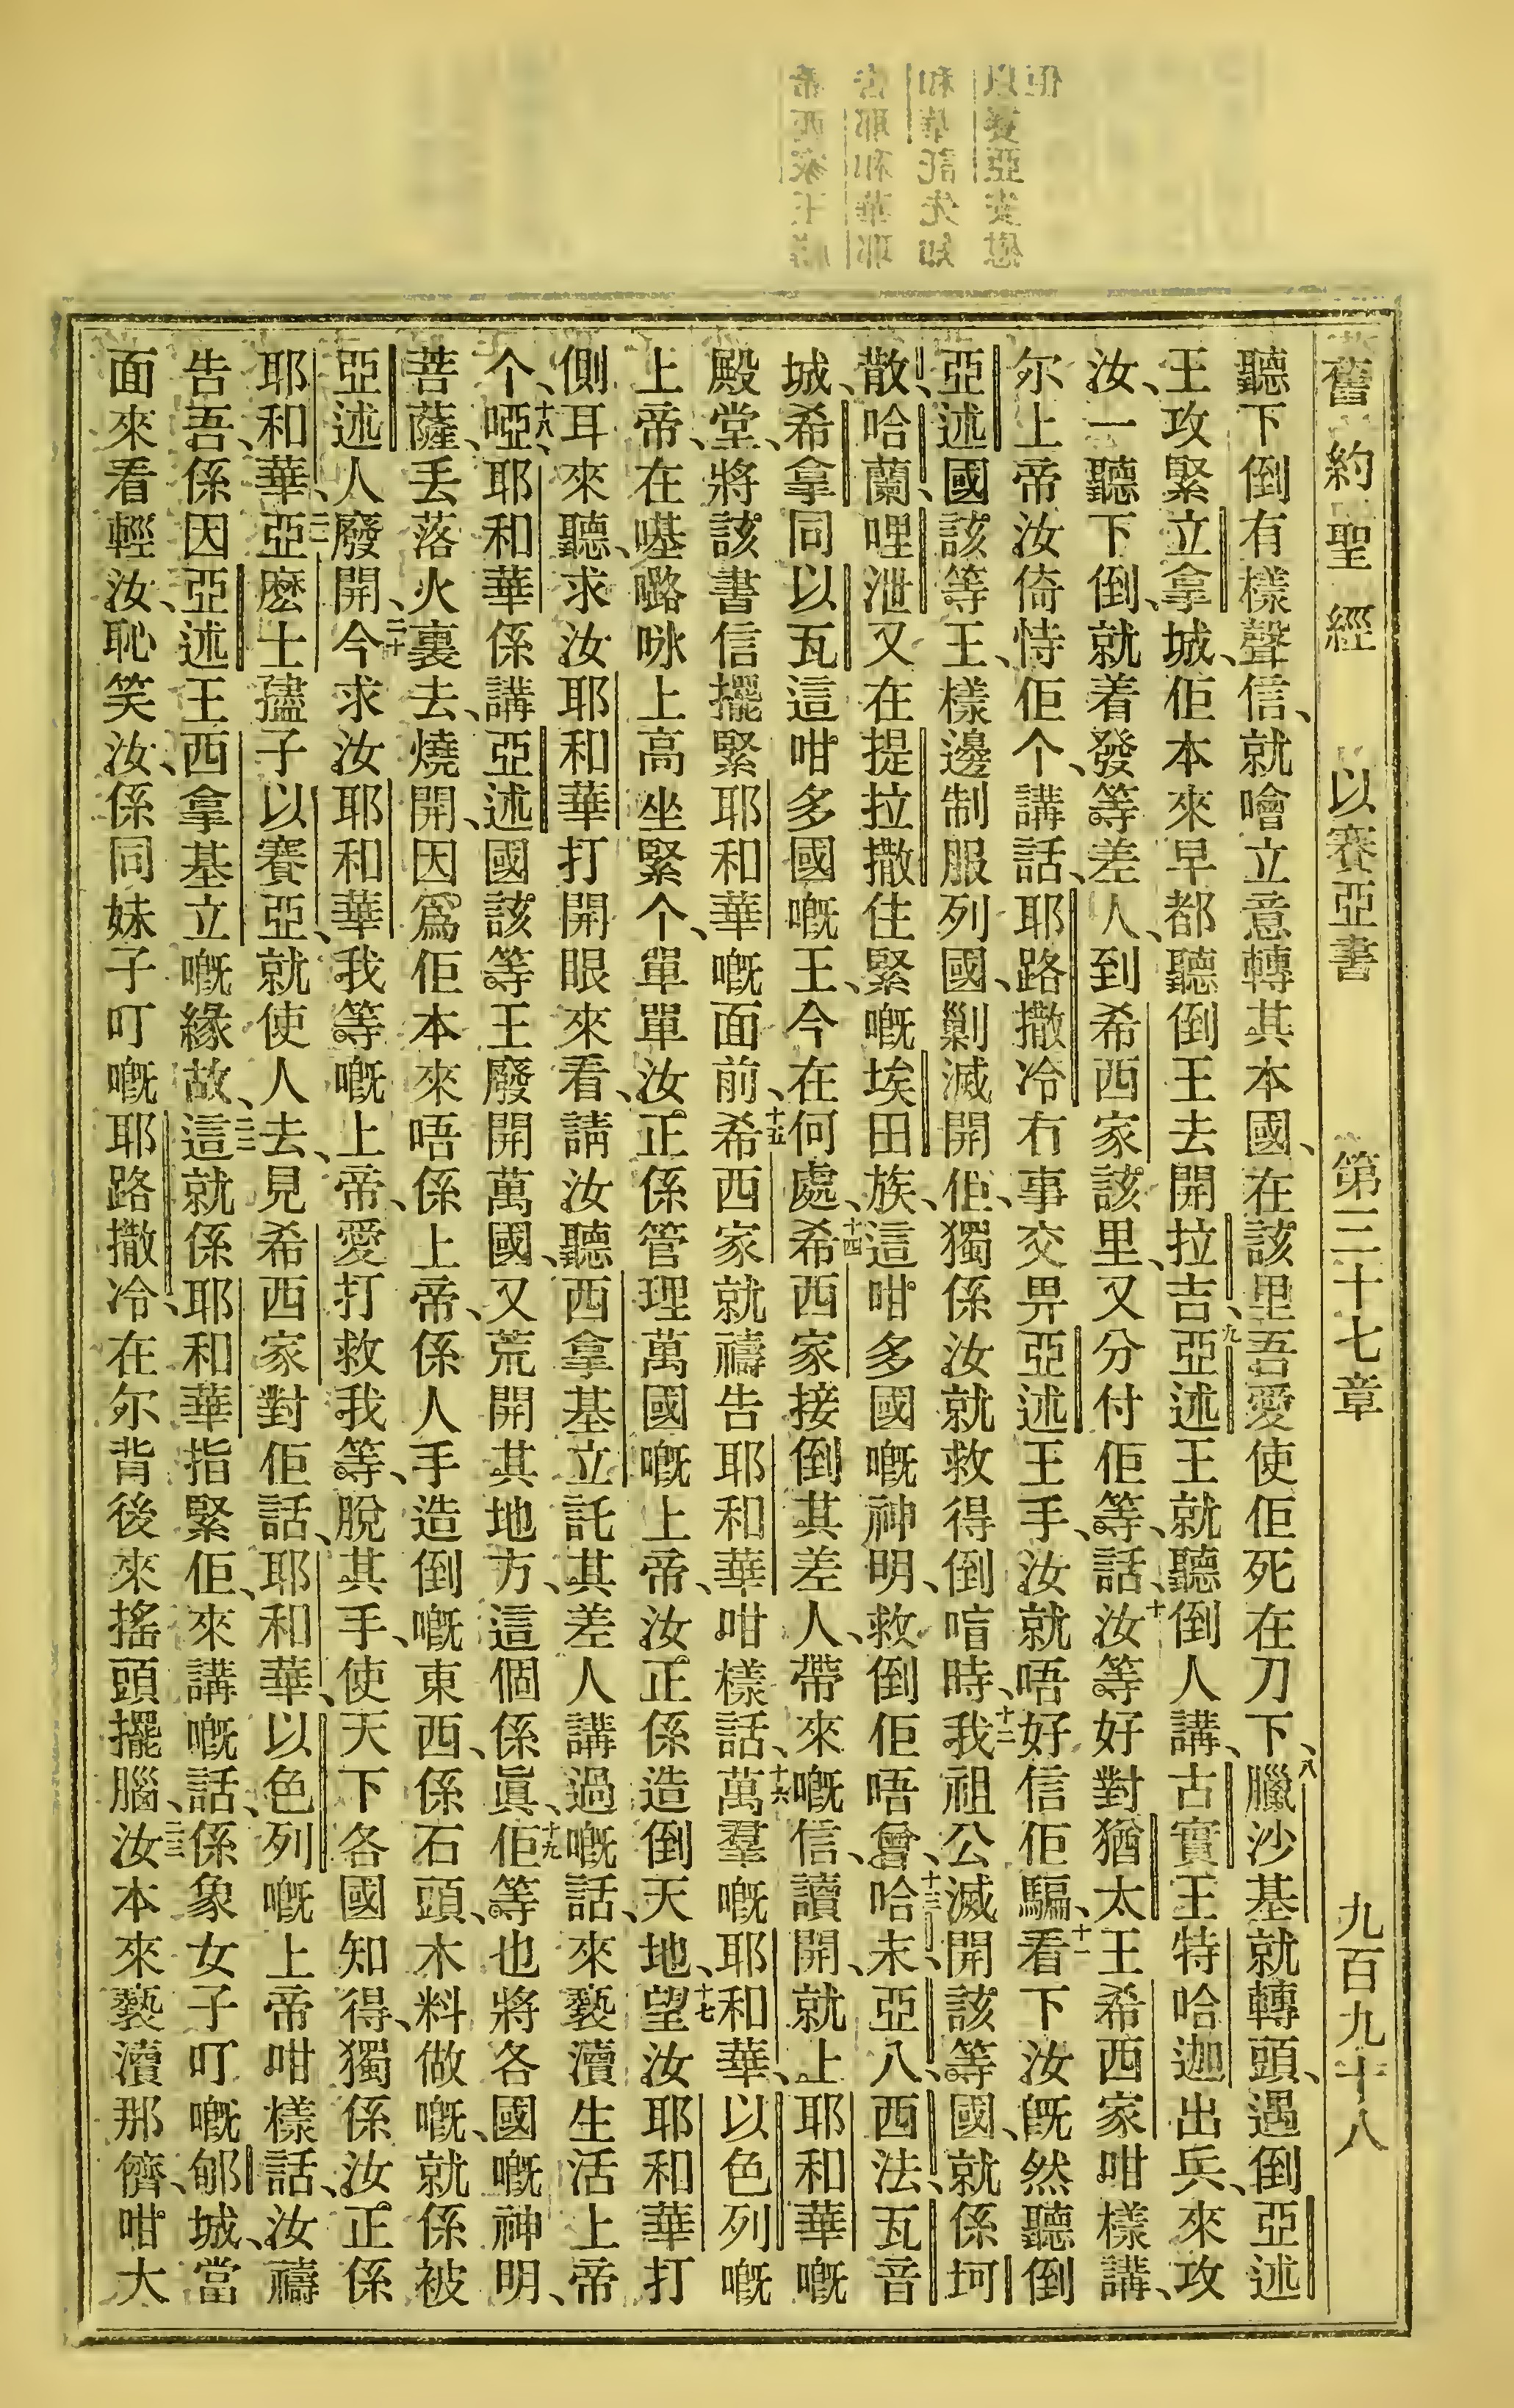 舊約聖經 以賽亞書 第三十七章 九百九十八
聽下倒有樣聲信、就噲立意轉其本國、在該里吾愛使佢死在刀下、八臘沙基就轉頭、遇倒亞述
王攻緊立拿城、佢本來早都聽倒王去開拉吉、九亞述王就聽倒人講、古實王特哈迦出兵、來攻
汝、一聽下倒、就着發等差人、到希西家該里、又分付佢等、話、十汝等好對猶太王希西家咁樣講、
尔上帝汝倚恃佢个、講話、耶路撒冷冇事交畀亞述王手、汝就唔好信佢騙、十一看下汝既然聽倒
亞述國該等王、樣邊制服列國、剿滅開佢、獨係汝就救得倒唔時、十二我祖公滅開該等國、就係坷
散、哈蘭、哩泄又在提拉撒住緊嘅埃田族、這咁多國嘅神明、救倒佢唔曾、十三哈末、亞八、西法、瓦音
城、希拿同以瓦這咁多國嘅王、今在何處、十四希西家接倒其差人、帶來嘅信、讀開、就上耶和華嘅
殿堂、將該書信擺緊耶和華嘅面前、十五希西家就禱告耶和華咁樣話、十六萬羣嘅耶和華、以色列嘅
上帝、在𠸝嚕咏上高坐緊个、單單汝正係管理萬國嘅上帝、汝正係造倒天地、十七望汝耶和華打
側耳來聽、求汝耶和華打開眼來看、請汝聽西拿基立託其差人講過嘅話、來褻瀆生活上帝
个、十八啞、耶和華係講亞述國該等王廢開萬國、又荒開其地方、這個係眞、十九佢等也將各國嘅神明、
菩薩、丟落火裏去、燒開、因爲佢本來唔係上帝、係人手造倒嘅東西、係石頭、木料做嘅、就係被
亞述人廢開、二十今求汝耶和華我等嘅上帝、愛打救我等、脫其手、使天下各國知得、獨係汝正係
耶和華、二一亞麽士孻子以賽亞、就使人去、見希西家對佢話、耶和華、以色列嘅上帝咁樣話、汝禱
告吾、係因亞述王西拿基立嘅緣故、二二這就係耶和華指緊佢、來講嘅話、係象女子叮嘅郇城、當
面來看輕汝、恥笑汝、係同妹子叮嘅耶路撒冷、在尔背後來搖頭擺腦、二三汝本來褻瀆那儕、咁大